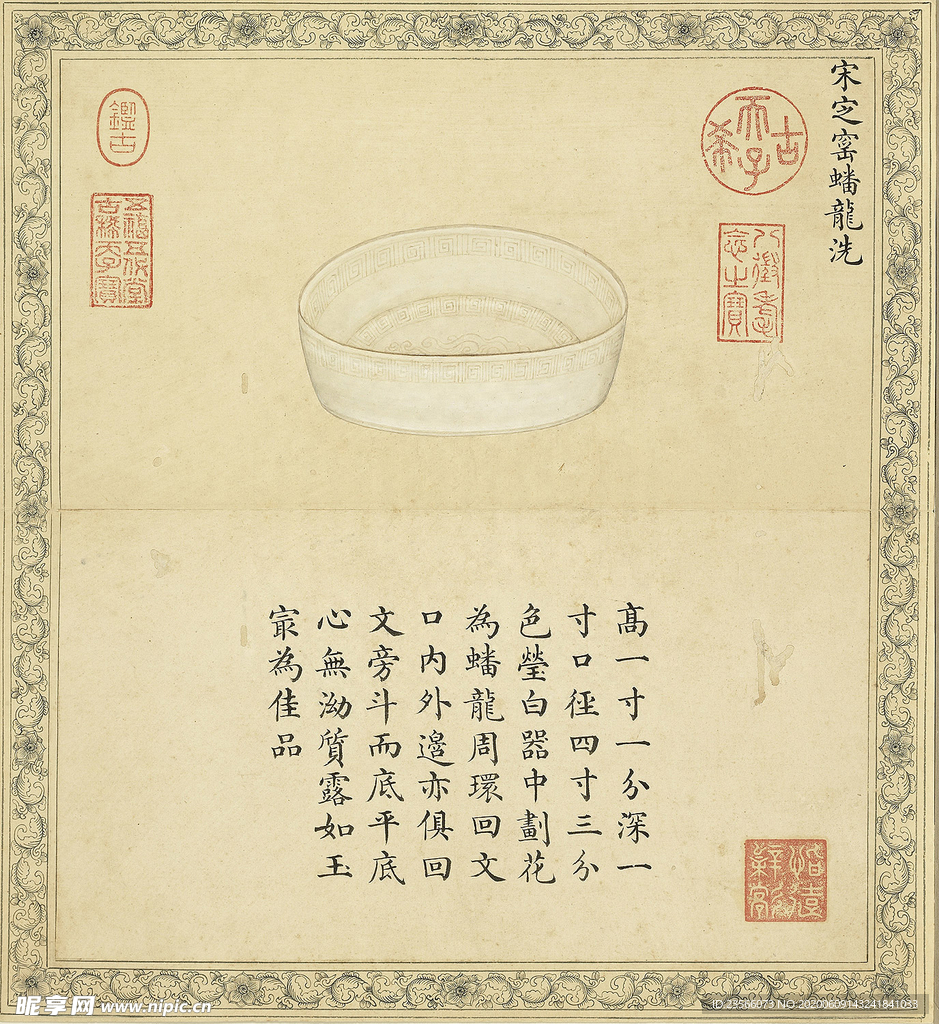 宋定窰蟠龍洗
古希天子
八徵耄念之寶
鑑古
五福五代堂古稀天子寶
高一寸一分深一
寸口徑四寸三分
色瑩白器中劃花
為蟠龍周環回文
口内外邊亦俱回
文旁斗而底平底
心無泑質露如玉
㝡為佳品
昵享网 www.nipic.cn
ID:28566073 NO:20200609143241841033